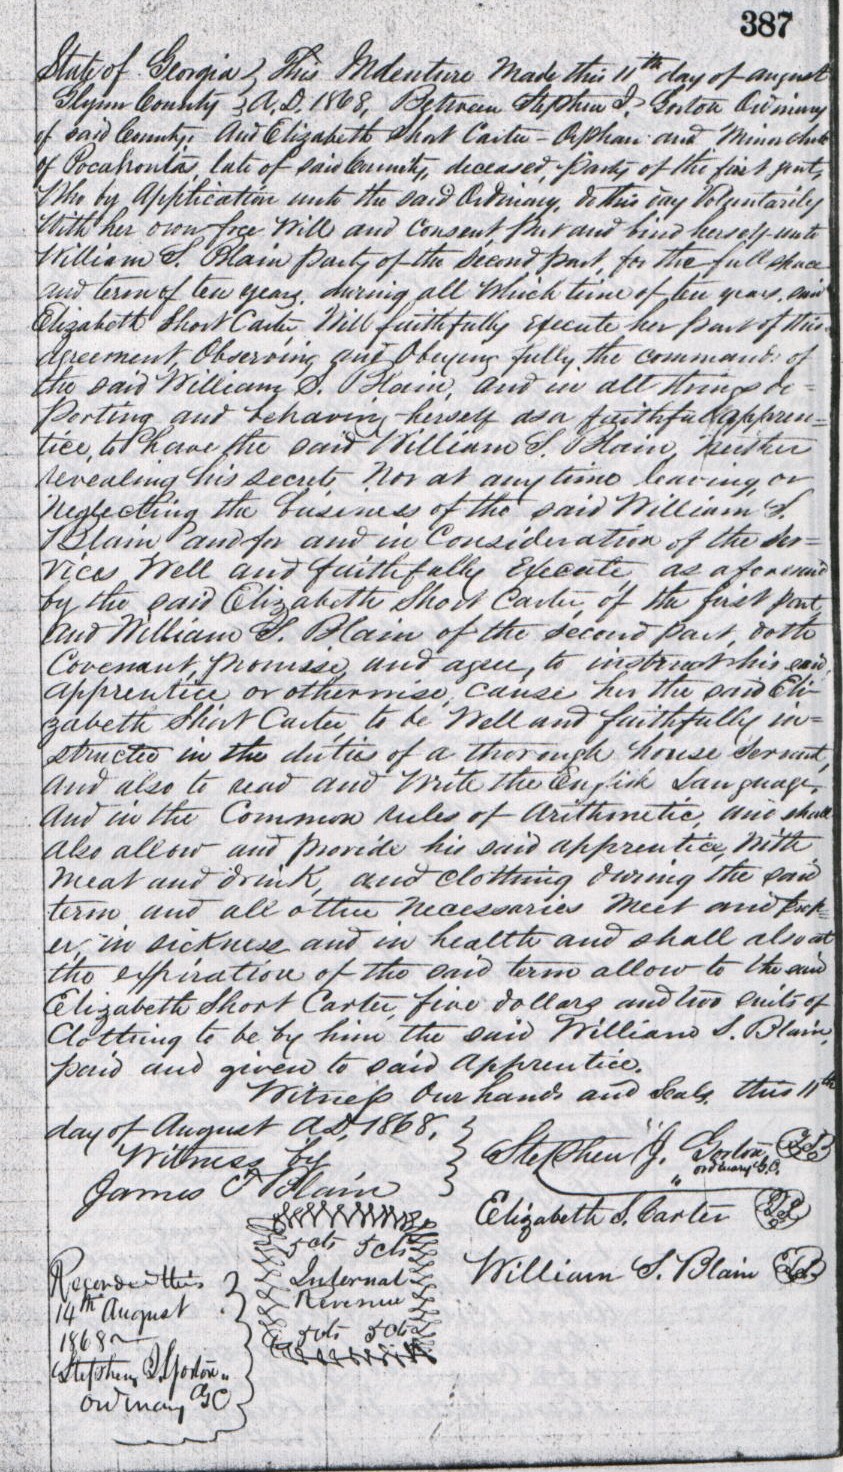 387
State of Georgia } This Indenture Made this 11th day of august
Glynn County } A.D. 1868, Between Stephen J. Gorton Ordinary
of said County, And Elizabeth Short Carter - Orphan and Minor child
of Pocahontas, late of said County, deceased, party of the first part,
Who by Application unto the said Ordinary, do this day Voluntarily
With her own free Will and Consent Put and bind herself unto
William S. Blain party of the second part, for the full space
and term of ten years, during all Which time of ten years, said
Elizabeth Short Carter Will faithfully execute her part of this
agreement, Observing and Obeying fully the commands of
the said William S. Blain, and in all things de=
porting and behaving herself as a faithful appren=
tice, to have the said William S. Blain, neither
revealing his secrets Nor at any time leaving or
Neglecting the business of the said William S.
Blain and for and in Consideration of the Ser=
vices Well and faithfully Execute, as aforesaid
by the said Elizabeth Short Carter, of the first part,
and William S. Blain of the second part, doth
Covenant, promise, and agree, to instruct his said
apprentice or otherwise, cause her the said Eli-
zabeth Short Carter, to be Well and faithfully in=
structed in the duties of a thorough house Servant,
and also to read and Write the English Language,
And in the Common rules of Arithmetic, and shall
also allow and provide his said apprentice, With
meat and drink, and clothing during the said
term and all other necessaries Meet and prop=
er, in sickness and in health and shall also at
the expiration of the said term allow to the said
Elizabeth Short Carter, five dollars and two suits of
Clothing to be by him the said William S. Blain,
paid and given to said Apprentice.
Witness Our hands and Seals, this 11th
day of August A.D, 1868,
Witness by
James T Blain
Stephen J. Gorton
ordinary G.C.
Elizabeth S. Carter
William S. Blain
5cts 5cts
Internal
Revenue
5cts 5cts
Recorded this
14th August
1868
Stephen J Gorton
Ordinary GC